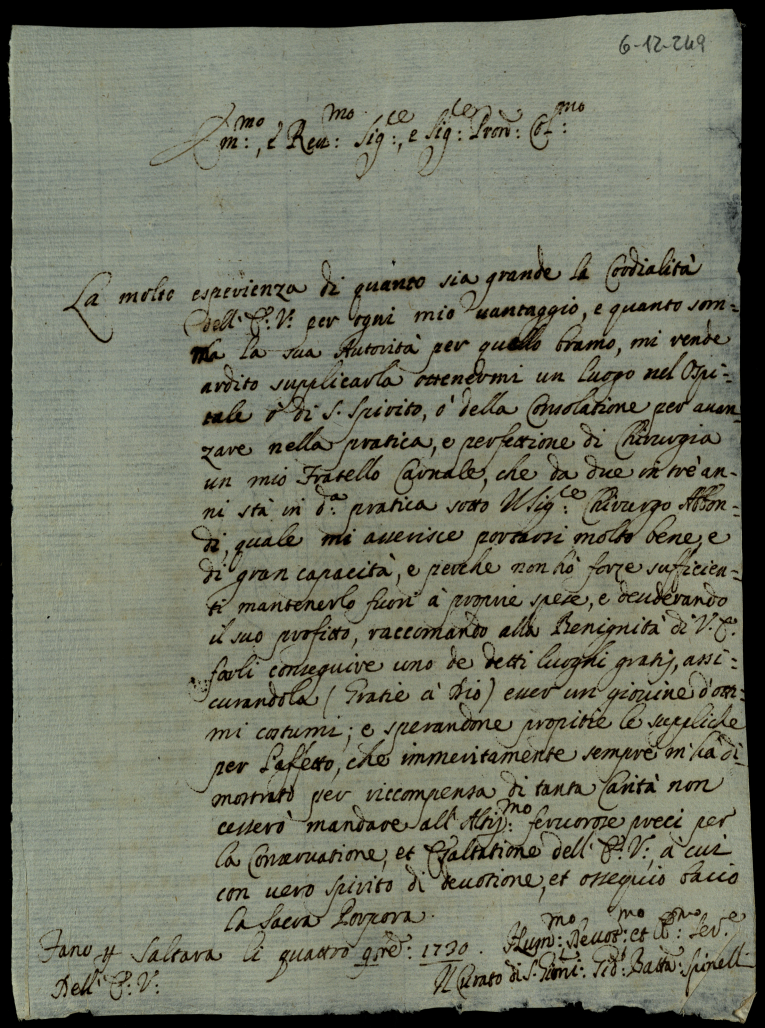 6-12-249
Em:mo, e Reu:mo Sig:re, e Sig:re Pron: Col:mo
La molto esperienza di quanto sia grande la Cordialità
dell' E:V: per ogni mio vantaggio, e quanto som=
ma la sua Autorità per quello bramo, mi rende
ardito supplicarla ottenermi un luogo nel Ospi=
tale ò di S. Spirito, ò della Consolatione per auan=
zare nella pratica, e perfettione di Chirurgia
un mio Fratello Carnale, che da due in trè an=
ni stà in d:a pratica sotto Il Sig:re Chirurgo Abbon=
di, quale mi asserisce portarsi molto bene, e
di gran capacità, e perche non hò forze sufficien=
ti mantenerlo fuori à proprie spese, e desiderando
il suo profitto, raccomando alla Benignità di V. E.
farli conseguire uno de detti luoghi gratij, assi=
curandola (Gratie à Dio) esser un giouine d'otti=
mi costumi; e sperandone propitie le suppliche
per l'affetto, che immeritamente sempre m'hà di=
mostrato per riccompensa di tanta Carità non
cesserò mandare all' Altiss:mo feruorose preci per
la Conseruatione, et Esaltatione dell' E:V:, a cui
con uero spirito di deuotione, et ossequio bacio
la Sacra Porpora.
Fano p Saltara li quattro 9bre: 1730.
Dell' E:V:
Hum:mo Deuot:mo et Ob:mo Ser:e
Il Curato di S. Gio: Batta: Spinelli